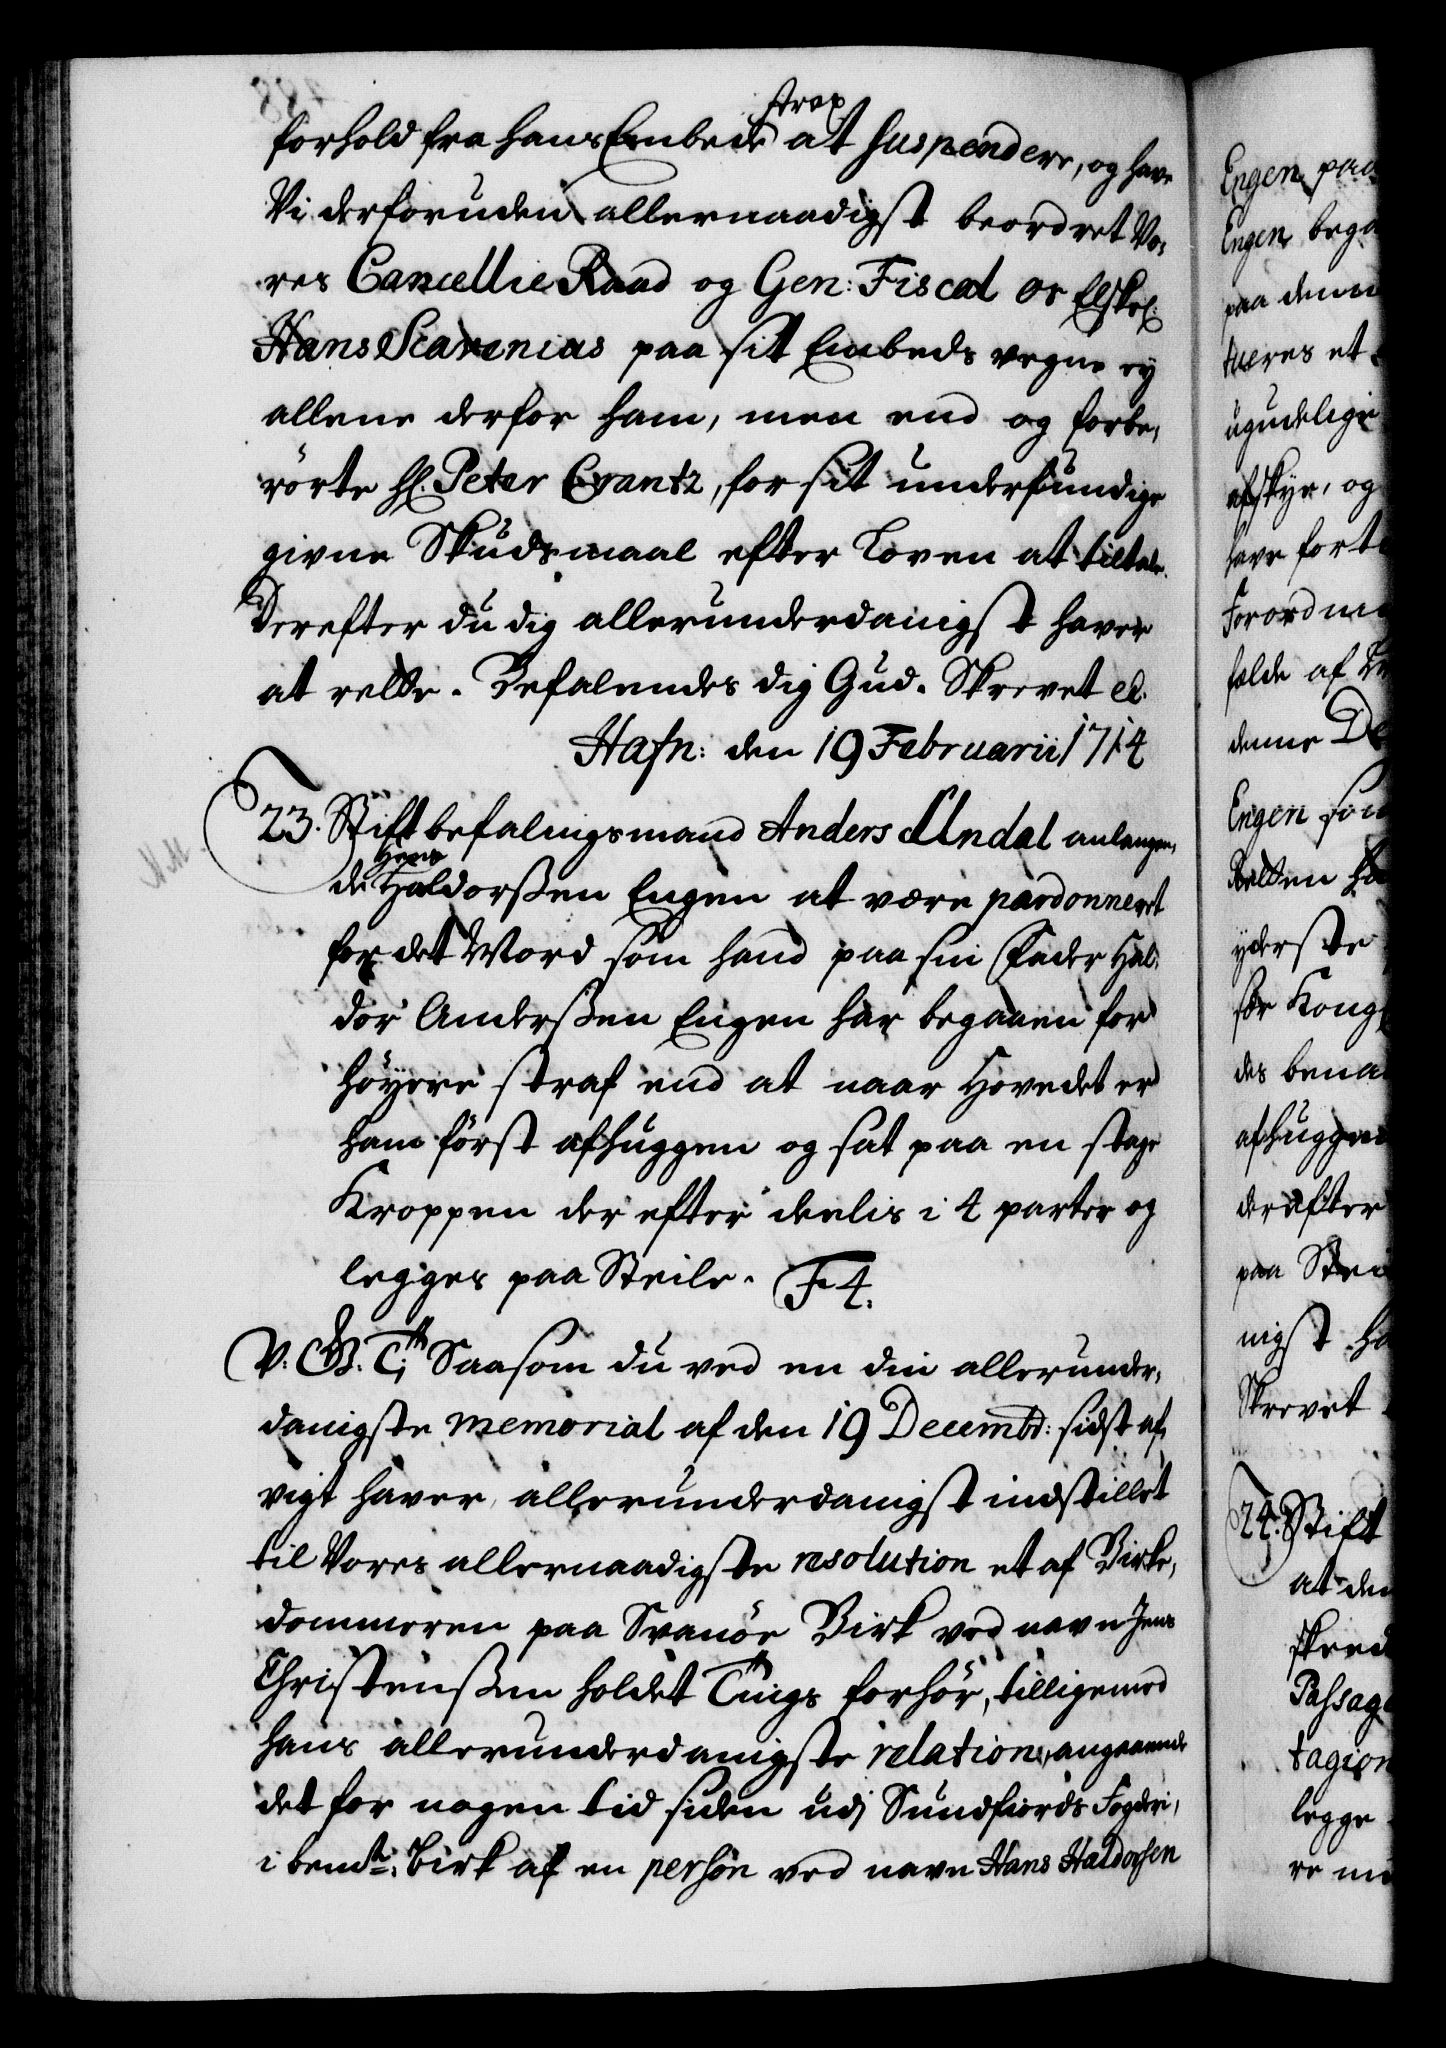 forhold fra hans Embede strax at suspendere, og have
Vi derforuden allernaadigst beordret Vo-
res Cancellie Raad og Gen: Fiscal os Elskel:
Hans Scavenius paa sit Embeds vegne ey
allene derfor ham, men end og forbe-
rörte Hl. Peter Crantz, for sit underfundige
givne Skudsmaal efter Loven at tiltale.
Derefter du dig allerunderdanigst haver
at rette. Befalendes dig Gud. Skrevet etc.
Hafn: den 19 Februarii 1714
23. Stiftbefalingsmand Anders Undal anlangen-
de Hans Haldorßen Engen at være pardonneret
for det Mord som hand paa sin Fader Hal-
dor Anderßen Engen har begaaen for
höyere straf end at naar Hovedet er
ham först afhuggen og sat paa en stage
Kroppen der efter deelis i 4 parter og
legges paa Steile. F4.
V: G: T: Saasom du ved en din allerunder-
danigste memorial af den 19 Decembr: sidst af-
vigt haver allerunderdanigst indstillet
til Vores allernaadigste resolution et af Birke-
dommeren paa Svanöe Birk ved navn Jens
Christenßen holdet Tings forhör, tilligemed
hans allerunderdanigste relation, angaaende
det for nogen tid siden udj Sundfiords Fogderi,
i bemte: Birk af en persohn ved navn Hans Haldorsen
Engen paa
Engen bega
paa denne
tueres et
ugudelige
afskye, og
have forte
Forordni
felde af
denne De
Engen son
Retten
yderste
for Kong
des bena
afhuggen
derefter
paa Stei
nigst ha
Skrevet
24. Stift
at den
skred
Passag
tagion
legge
re